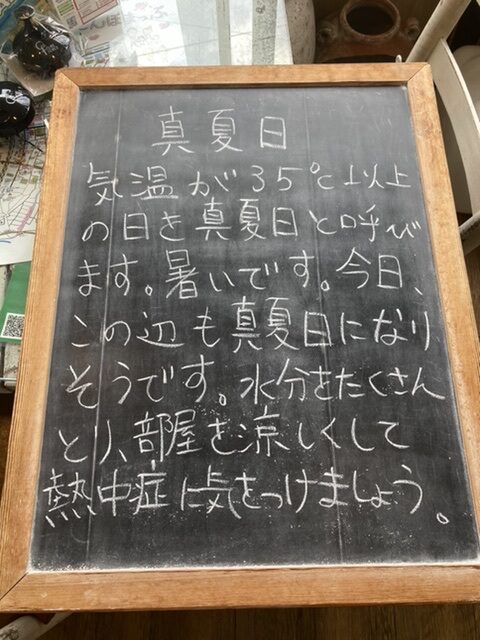 真夏日
気温が35℃以上
の日を真夏日と呼び
ます。暑いです。今日、
この辺も真夏日になり
そうです。水分をたくさん
とり、部屋を涼しくして
熱中症に気をつけましょう。